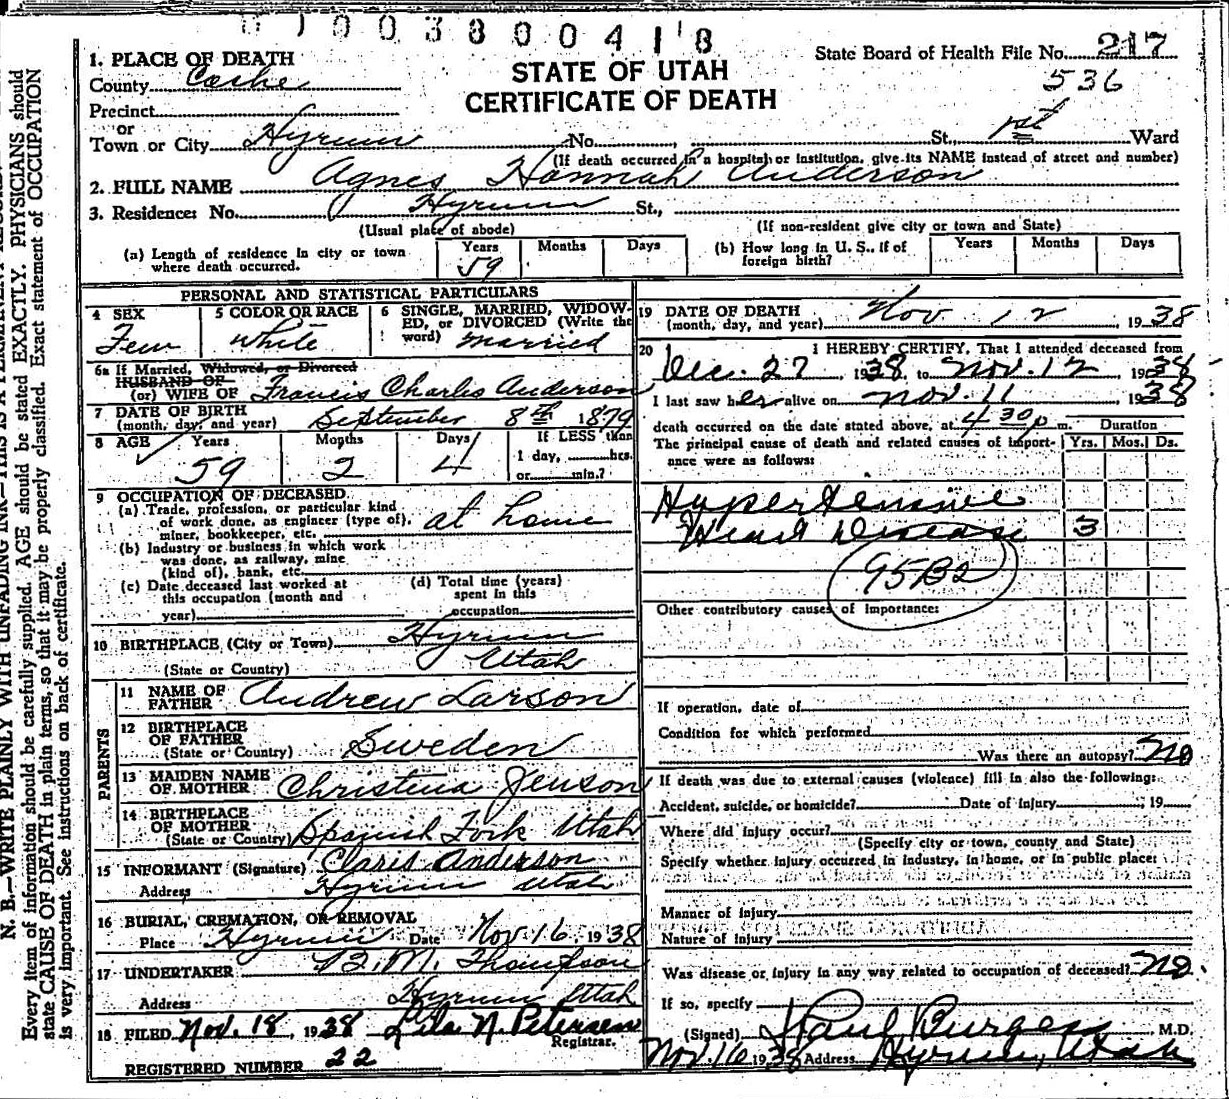 0 1 0 0 3 8 0 0 4 1 8
1. PLACE OF DEATH
County Cache
Precinct
or
Town or City Hyrum No. , St., 1st Ward
State Board of Health File No. 217
536
STATE OF UTAH
CERTIFICATE OF DEATH
(If death occurred in a hospital or institution, give its NAME instead of street and number)
2. FULL NAME Agnes Hannah Anderson
3. Residence: No. Hyrum St.,
(Usual place of abode) (If non-resident give city or town and State)
(a) Length of residence in city or town where death occurred. Years 59 Months Days
(b) How long in U. S., if of foreign birth? Years Months Days
PERSONAL AND STATISTICAL PARTICULARS
4 SEX Fem
5 COLOR OR RACE White
6 SINGLE, MARRIED, WIDOWED, or DIVORCED (Write the word) Married
6a If Married, Widowed, or Divorced
HUSBAND OF
(or) WIFE OF Francis Charles Anderson
7 DATE OF BIRTH
(month, day, and year) September 8th 1879
8 AGE Years 59 Months 2 Days 4 If LESS than 1 day, hrs. or min.?
9 OCCUPATION OF DECEASED
(a) Trade, profession, or particular kind of work done, as engineer (type of), miner, bookkeeper, etc. at home
(b) Industry or business in which work was done, as railway, mine (kind of), bank, etc.
(c) Date deceased last worked at this occupation (month and year)
(d) Total time (years) spent in this occupation
10 BIRTHPLACE (City or Town) Hyrum
(State or Country) Utah
PARENTS
11 NAME OF FATHER Andrew Larson
12 BIRTHPLACE OF FATHER
(State or Country) Sweden
13 MAIDEN NAME OF MOTHER Christina Jenson
14 BIRTHPLACE OF MOTHER
(State or Country) Spanish Fork Utah
15 INFORMANT (Signature) Claris Anderson
Address Hyrum Utah
16 BURIAL, CREMATION, OR REMOVAL
Place Hyrum Date Nov. 16, 1938
17 UNDERTAKER B. M. Thompson
Address Hyrum Utah
18 FILED Nov. 18, 1938 Lila N. Petersen
Registrar.
REGISTERED NUMBER 22
19 DATE OF DEATH
(month, day, and year) Nov 12 1938
20 I HEREBY CERTIFY, That I attended deceased from
Dec. 27 1938, to Nov. 12 1938
I last saw her alive on Nov. 11 1938
death occurred on the date stated above, at 4 30 p m. Duration
The principal cause of death and related causes of importance were as follows: Yrs. Mos. Ds.
Hypertensive
Heart Disease 3
95B2
Other contributory causes of importance:
If operation, date of
Condition for which performed
Was there an autopsy? No
If death was due to external causes (violence) fill in also the following:
Accident, suicide, or homicide? Date of injury , 19
Where did injury occur?
(Specify city or town, county and State)
Specify whether injury occurred in industry, in home, or in public place:
Manner of injury
Nature of injury
Was disease or injury in any way related to occupation of deceased? No.
If so, specify
(Signed) Paul Burgess, M.D.
Nov. 16 1938 Address Hyrum, Utah
N. B.—WRITE PLAINLY WITH UNFADING INK—THIS IS A PERMANENT
Every item of information should be carefully supplied. AGE should be stated EXACTLY. PHYSICIANS should
state CAUSE OF DEATH in plain terms, so that it may be properly classified. Exact statement of OCCUPATION
is very important. See instructions on back of certificate.